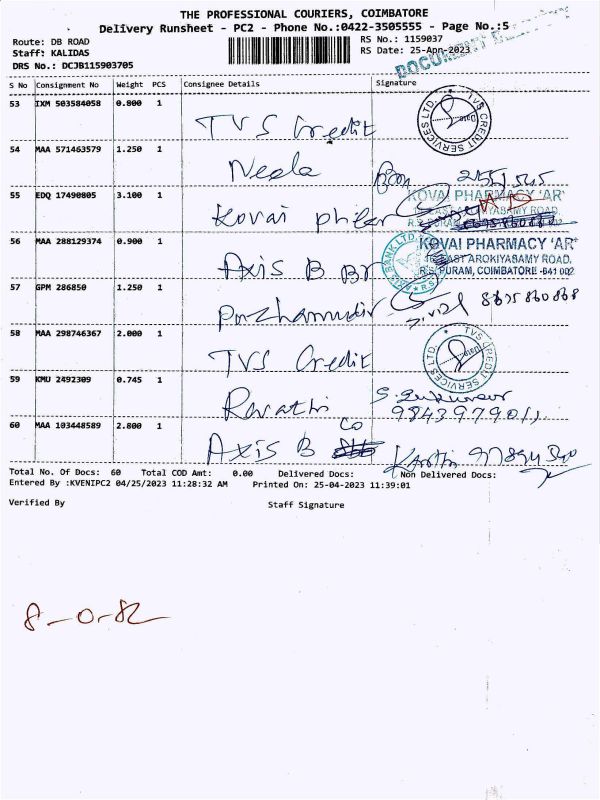 THE PROFESSIONAL COURIERS, COIMBATORE
Delivery Runsheet - PC2 - Phone No.:0422-3505555 - Page No.:5
Route: DB ROAD
RS No.: 1159037
Staff: KALIDAS
RS Date: 25-Apr-2023
DRS No.: DCJB115903705
DOCUMENT
S No Consignment No Weight PCS Consignee Details Signature
53 IXM 503584058 0.800 1
TVS Credit
TVS CREDIT SERVICES LTD.
54 MAA 571463579 1.250 1
Neela
55 EDQ 17490805 3.100 1
Kovai
KOVAI PHARMACY 'AR'
56 MAA 288129374 0.900 1
Axis B Br
AXIS BANK LTD.
KOVAI PHARMACY 'AR'
EAST AROKIYASAMY ROAD,
R.S. PURAM, COIMBATORE -641 002
57 GPM 286850 1.250 1
58 MAA 298746367 2.000 1
TVS Credit
TVS CREDIT SERVICES LTD.
59 KMU 2492309 0.745 1
Revathi
60 MAA 103448589 2.800 1
Axis B Co
Total No. Of Docs: 60 Total COD Amt: 0.00 Delivered Docs: Non Delivered Docs:
Entered By :KVENIPC2 04/25/2023 11:28:32 AM Printed On: 25-04-2023 11:39:01
Verified By Staff Signature
8-0-82